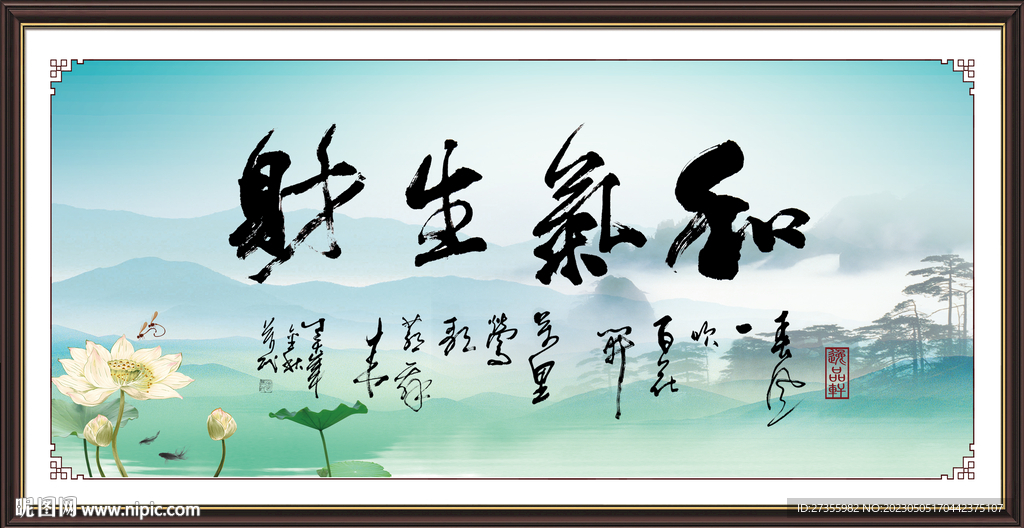 和氣生財
春风一吹百花開万里鶯歌燕舞
金秋
逸品軒
昵图网 www.nipic.com
ID:27355982 NO:20230505170442375107